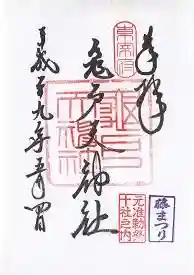 奉拝
亀戸天神社
平成十九年五月四日
東宰府
亀戸天満神
元准勅祭十社之内
藤まつり